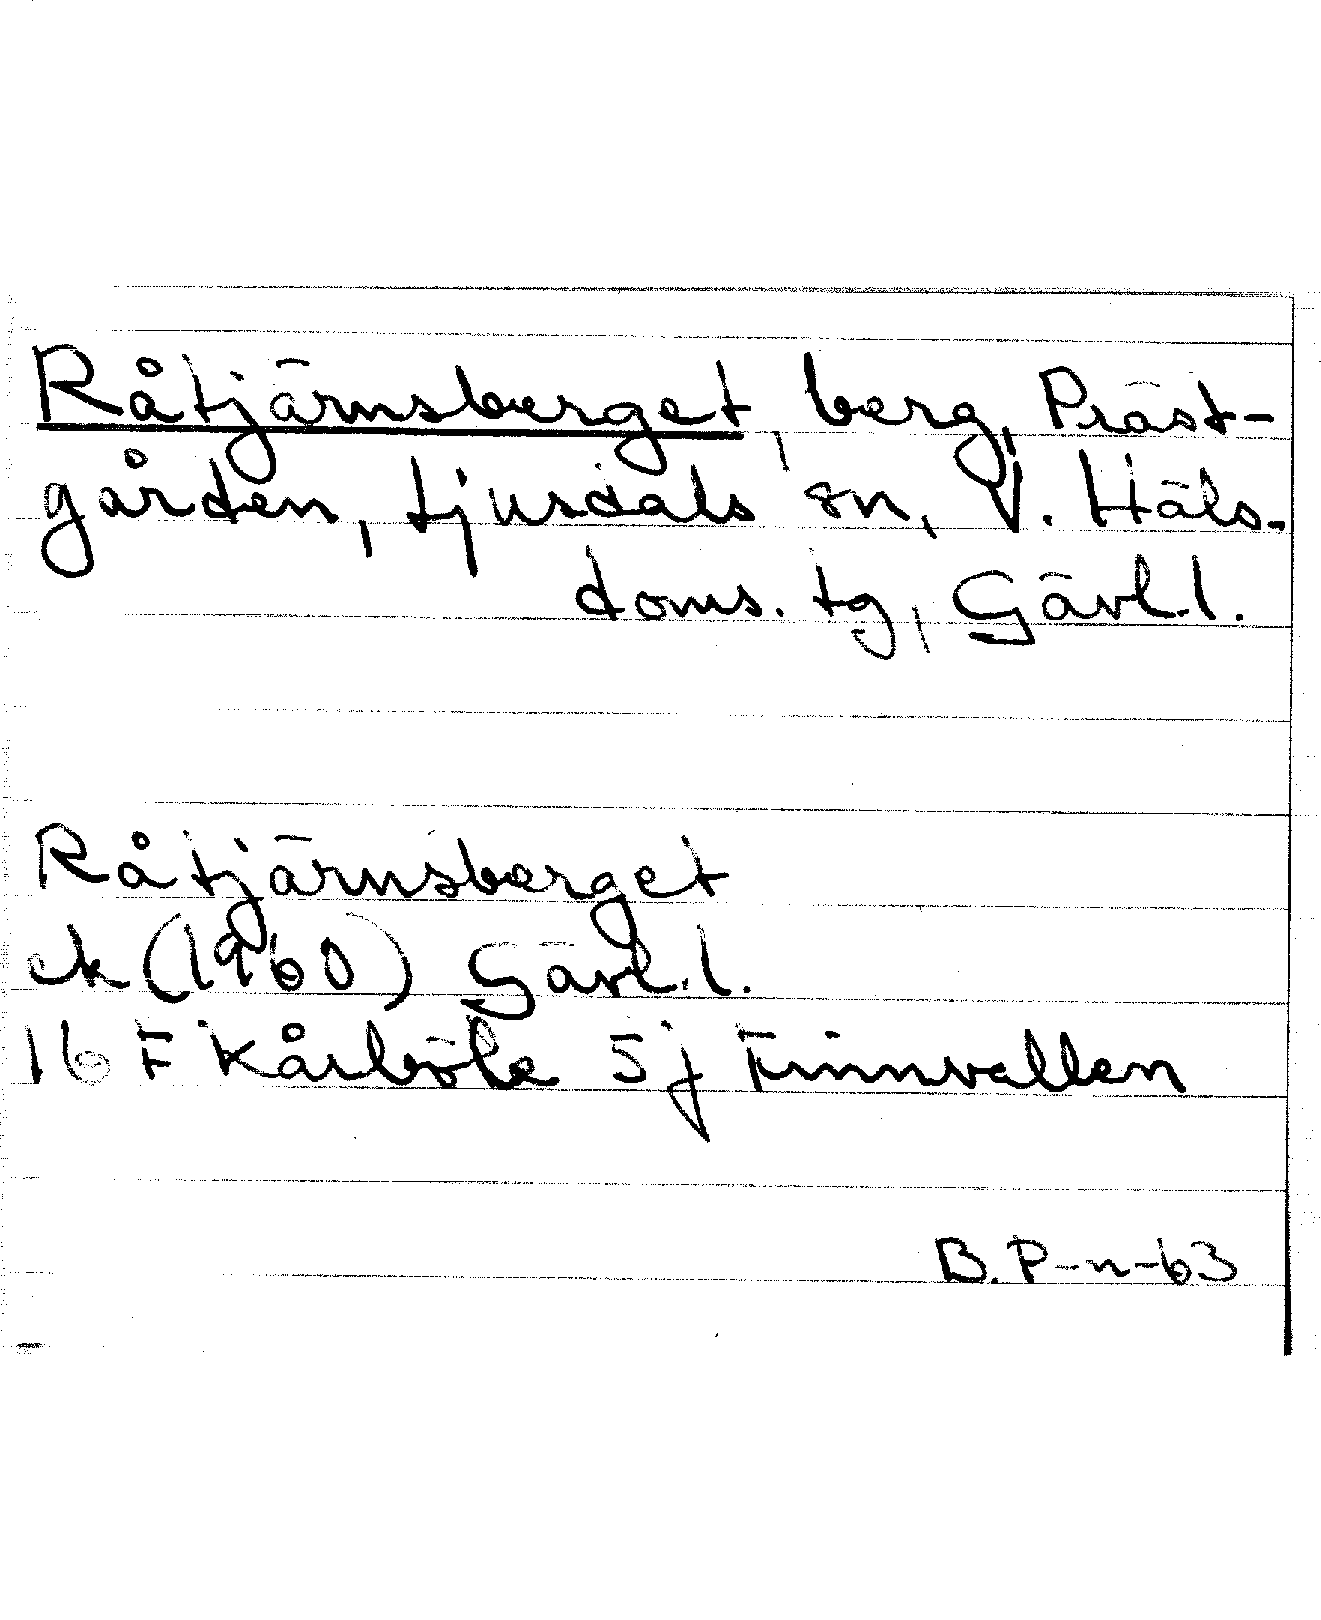 Råtjärnsberget, berg, Präst-
gården, Ljusdals sn, V. Häls.
doms. tg, Gävl.l.
Råtjärnsberget
ek (1960) Gävl.l.
16 F Kårböle 5j Finnvallen
B. P-n-63